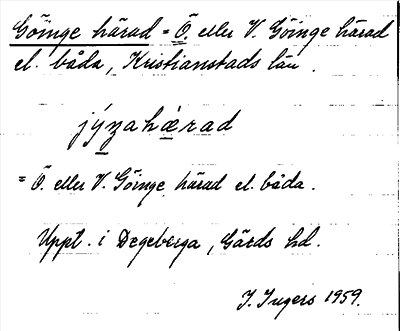 Göinge härad = Ö. eller V. Göinge härad
el. båda, Kristianstads län.
jýnahæ̀rad
= Ö. eller V. Göinge härad el. båda.
Uppt. i Degeberga, Gärds hd.
I. Ingers 1959.